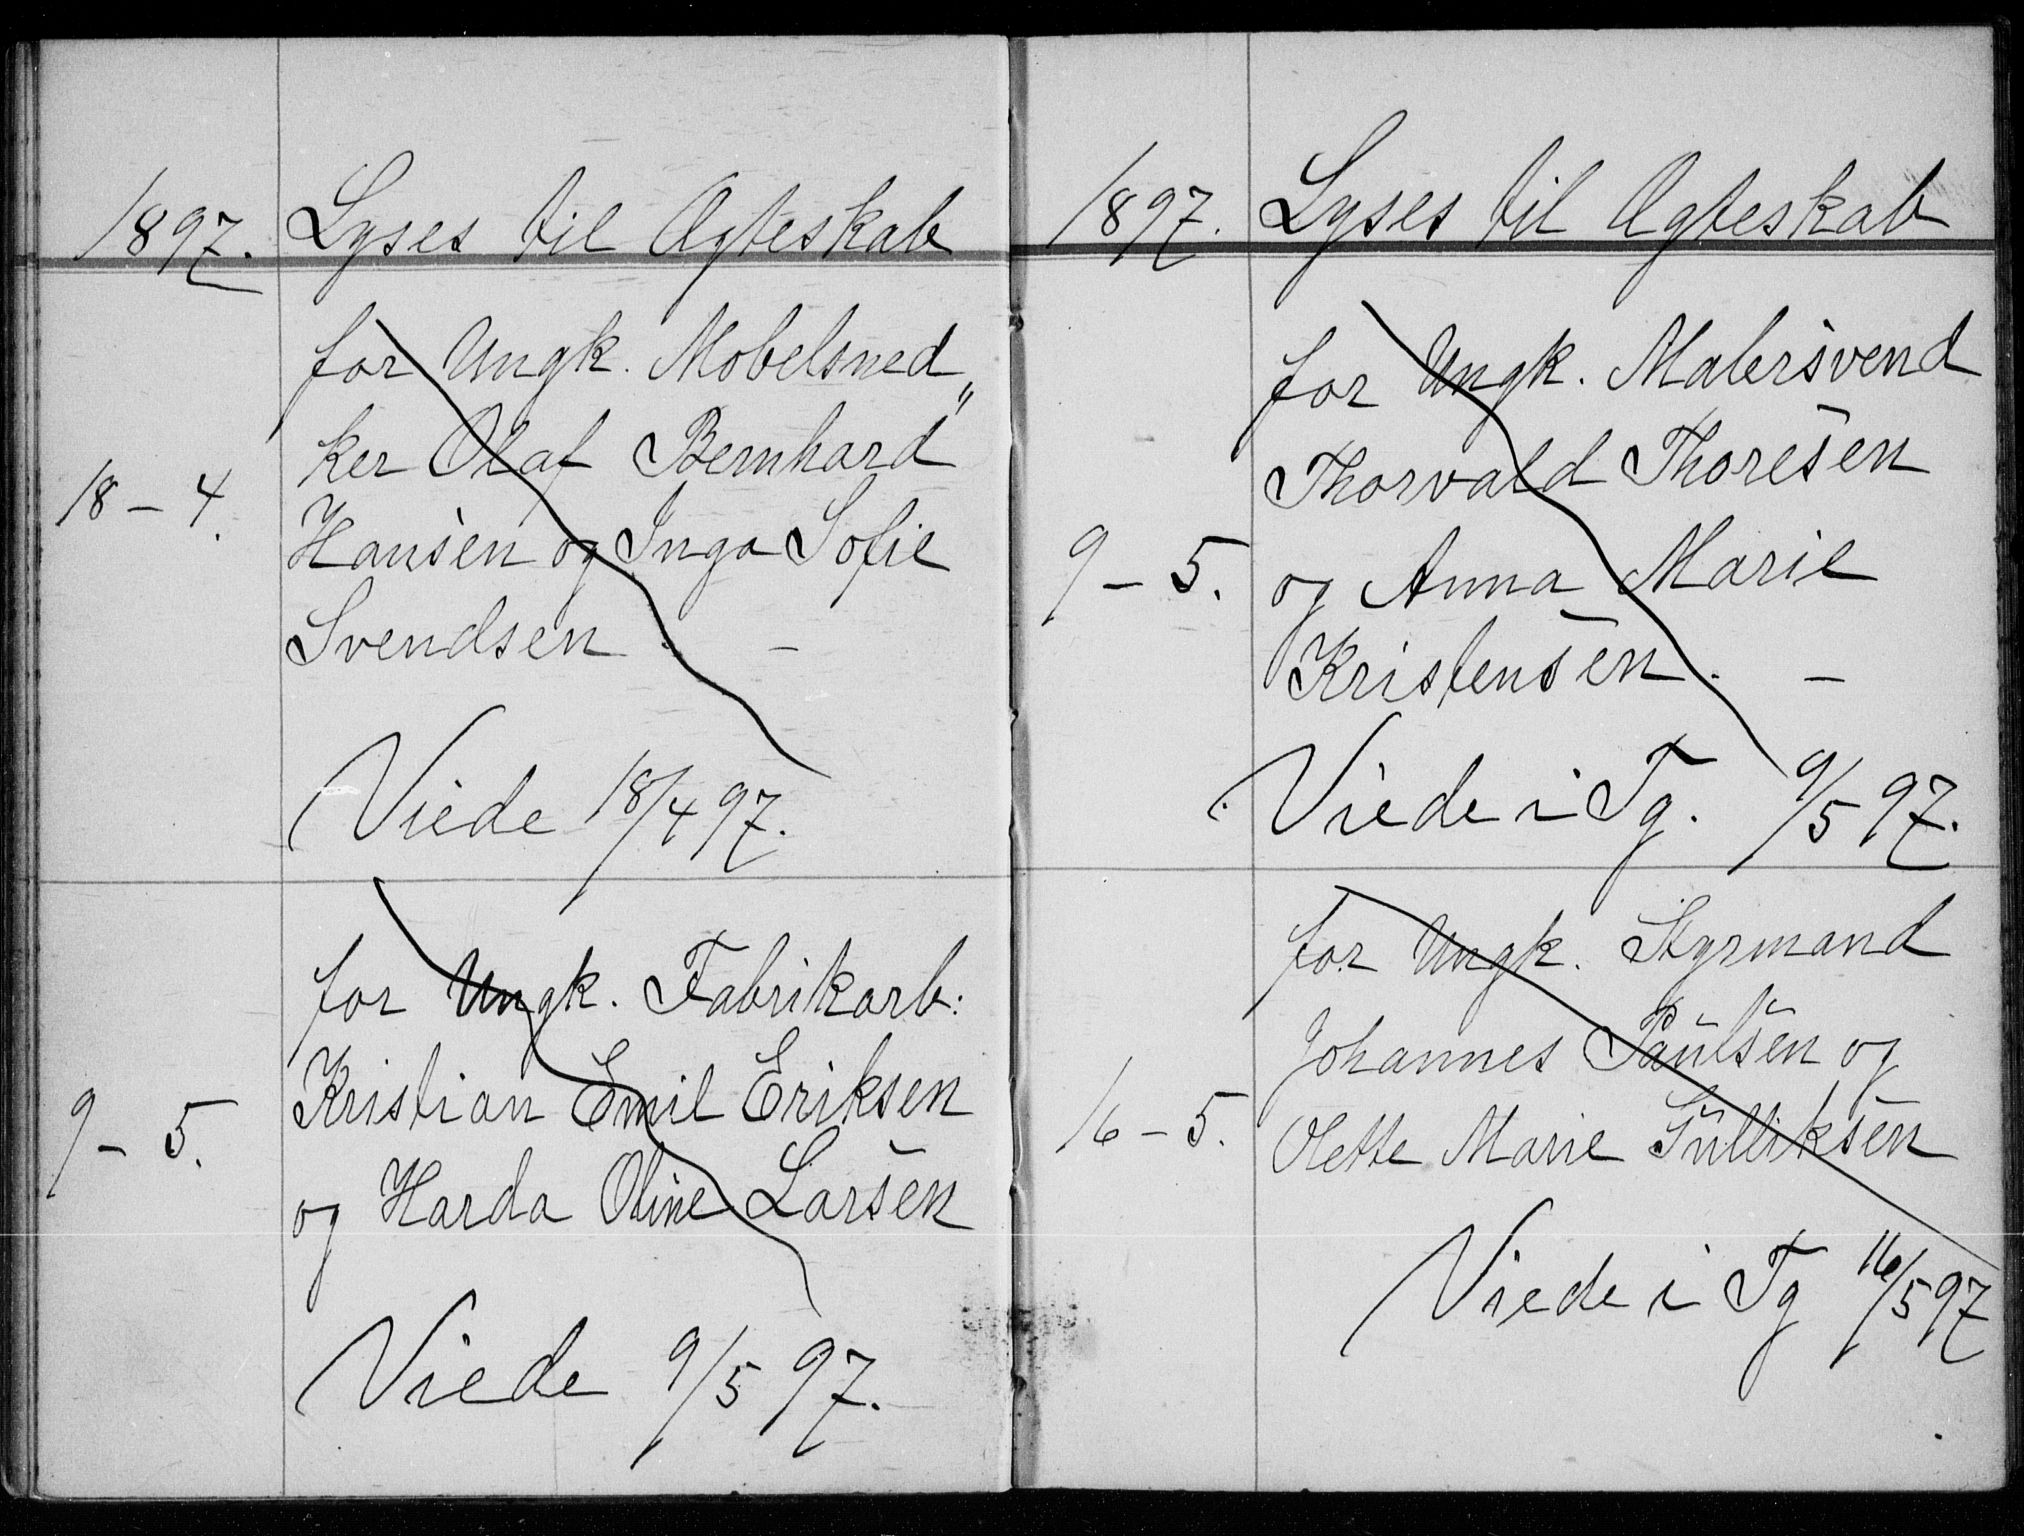 1897. Lyses til Ægteskab
for Ungk. Møbelsned„
18 - 4. ker Olaf Bernhard
Hansen og Inga Sofie
Svendsen. -
Viede 18/4 97.
for Ungk. Fabrikarb:
Kristian Emil Eriksen
9 - 5.
og Harda Oline Larsen
Viede 9/5 97.
1897. Lyses til Ægteskab
for Ungk. Malersvend
Thorvald Thoresen
9 - 5. og Anna Marie
Kristensen. -
Viede i Tg. 9/5 97.
for Ungk. Styrmand
Johannes Paulsen og
16 - 5. Olette Marie Gulliksen
Viede i Tg 16/5 97